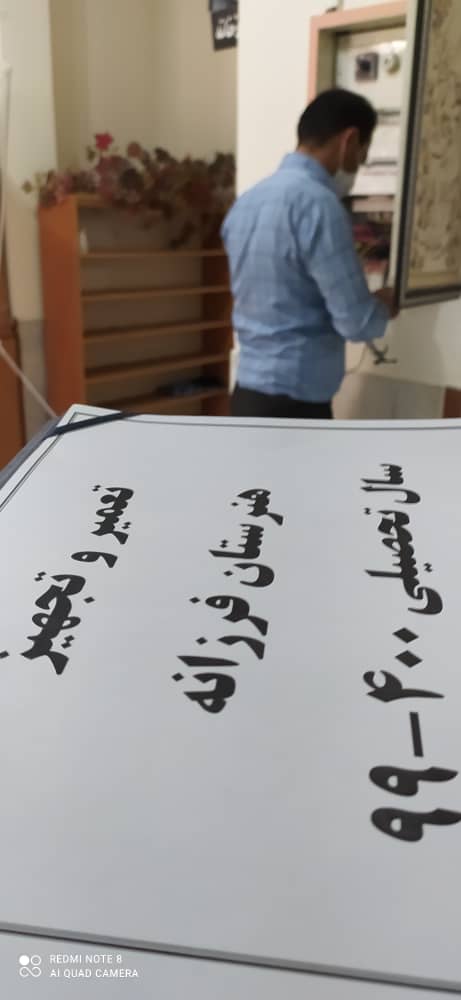 تعمیر و تجهیز
هنرستان فرزانه
سال تحصیلی ۴۰۰-۹۹
REDMI NOTE 8
AI QUAD CAMERA